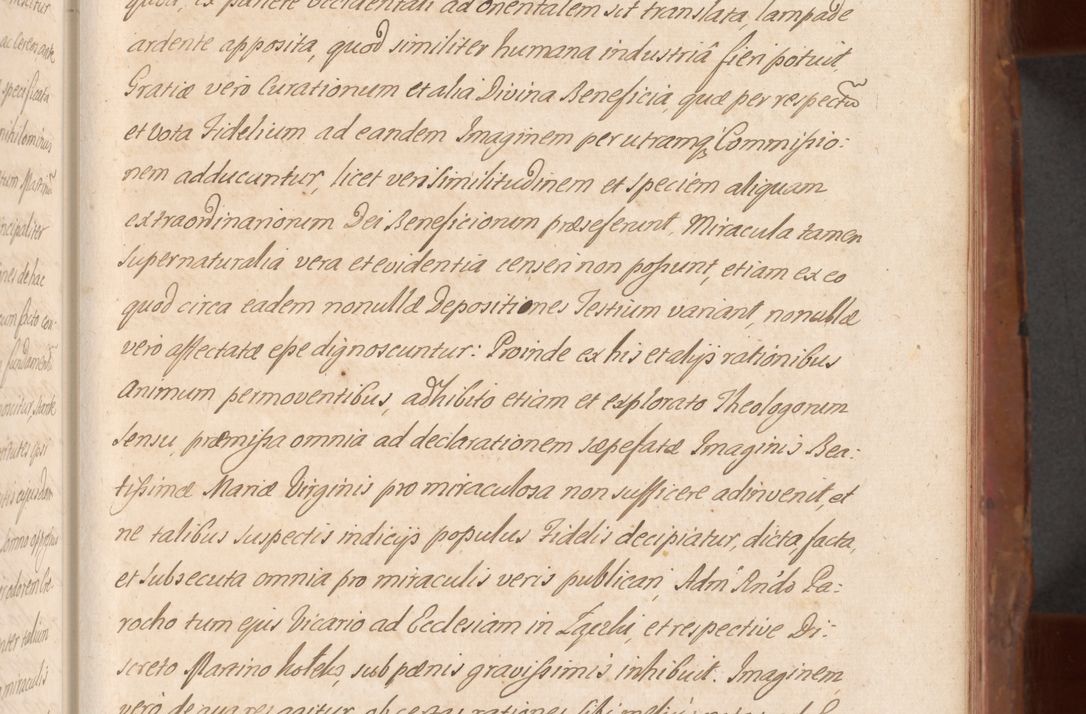 ex pariete occidentali ad orientalem sit translata, lampade
ardente apposita, quod similiter humana industriâ fieri potuit
Gratiæ vero Curationum et alia Divina Beneficia, quæ per respectũ
et vota Fidelium ad eandem Imaginem per utramq Commißio:
nem adducuntur, licet verisimilitudinem et speciem aliquam
extraordinariorum Dei Beneficiorum præseferunt, Miracula tamen
supernaturalia vera et evidentia censeri non poßunt, etiam ex eo
quod circa eadem nonullæ Depositiones Testium variant, nonullæ
vero affectatæ eße dignoscuntur: Proinde ex his et alijs rationibus
Animum permoventibus, adhibito etiam et explorato Theologorum
sensu, præmißa omnia ad declarationem sæpefatæ Imaginis Bea:
tißimæ Mariæ Virginis pro miraculosa non sufficere adinvenit, et
ne talibus suspectis indicijs populus Fidelis decipiatur, dicta, facta,
et subsecuta omnia pro miraculis veris publicari, Adm Rndo Pa:
rocho tum ejus Vicario ad Ecclesiam in et respective Di:
screto Martino sub pænis gravißimis inhibuit. Imaginem
vero
ac Cerem
specificata
nihilominus
ncipaliter
fines de hac
cum facto con:
ter talium
miraculis